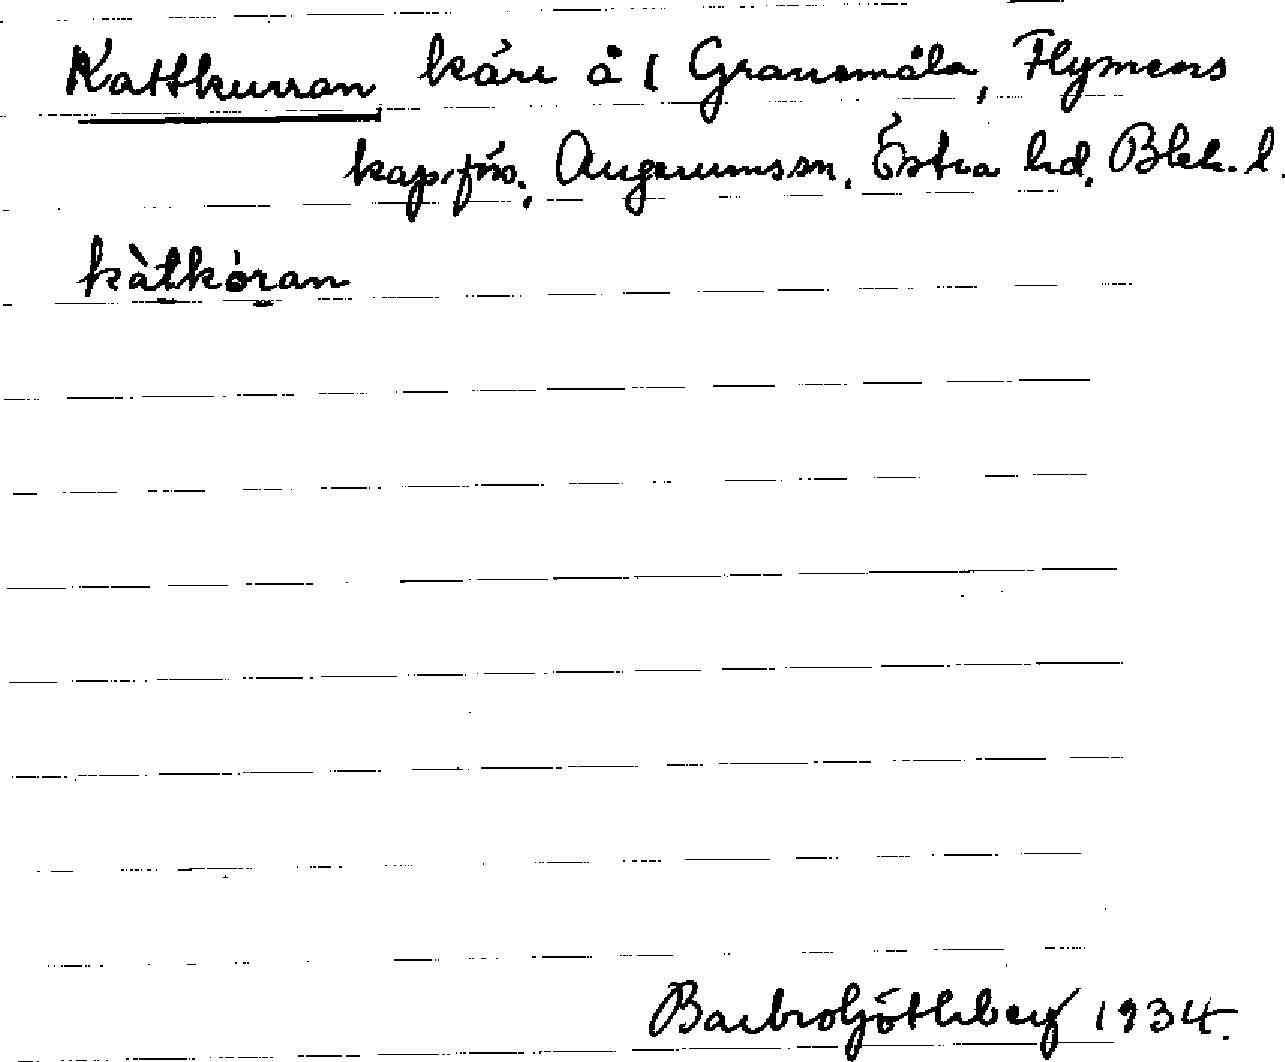 Kattkurran kärr å 1 Granemåla, Flymens
kap.förs., Augerumssn, Östra hd, Blek. l.
kàtkóran
Barbro Göthberg 1934.